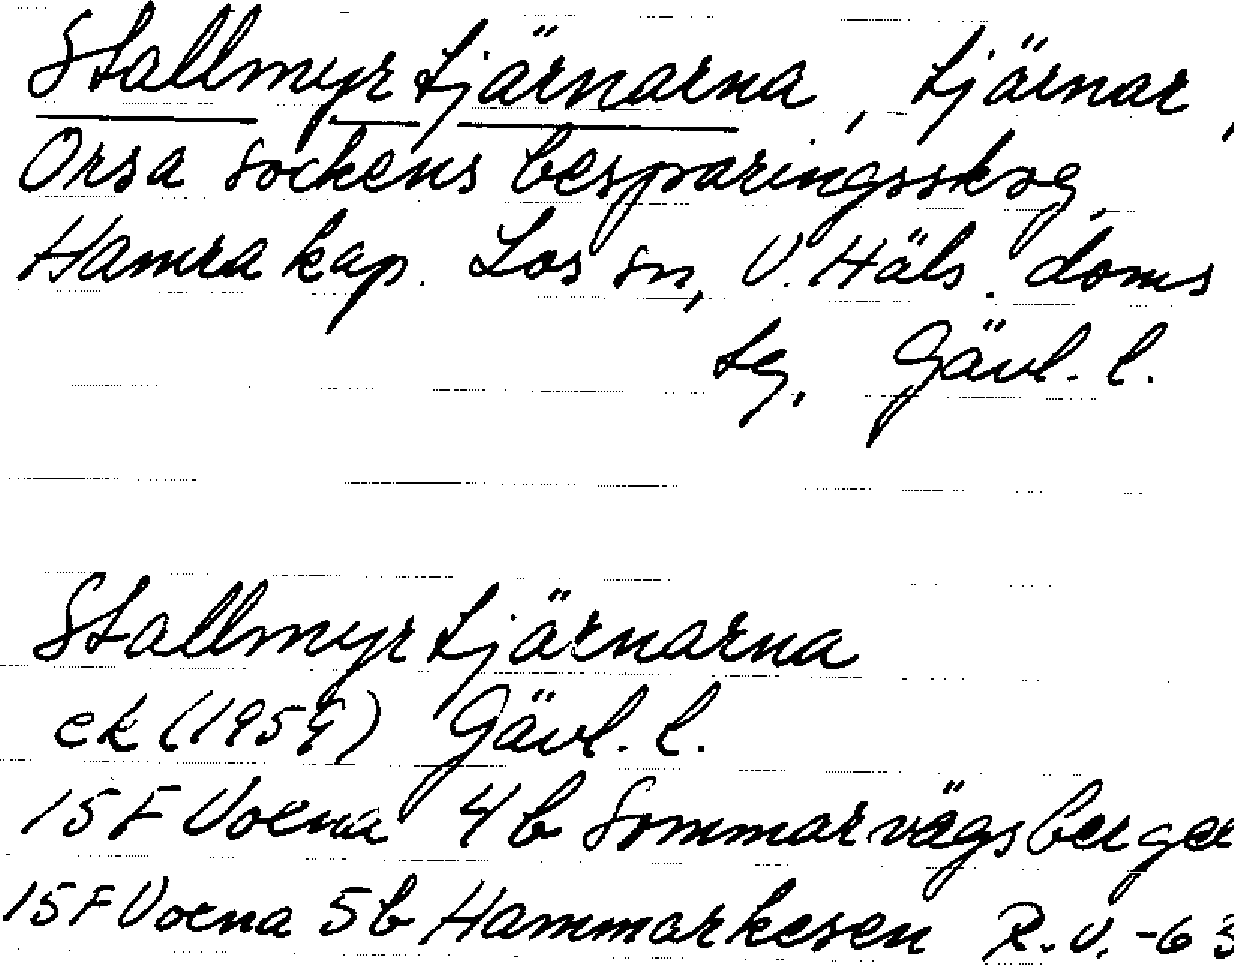 Stallmyrtjärnarna, tjärnar,
Orsa sockens besparingsskog,
Hamra kap. Los sn, V. Häls. doms
sg, Gävl. l.
Stallmyrtjärnarna
ek (1959) Gävl. l.
15 F Voxna 4b Sommarvägsberget
15 F Voxna 5b Hammarkesen R.V. -63